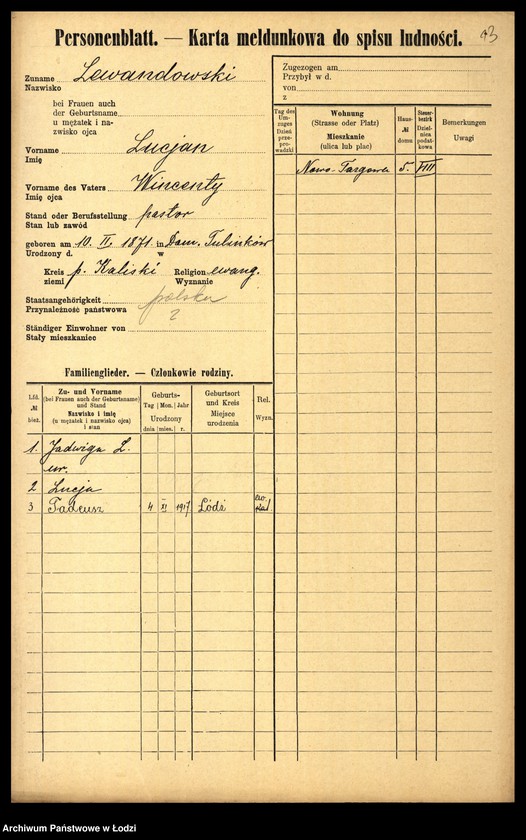 Personenblatt. — Karta meldunkowa do spisu ludności.
Zuname Lewandowski
Nazwisko
bei Frauen auch
der Geburtsname
u mężatek i na-
zwisko ojca
Vorname Lucjan
Imię
Vorname des Vaters Wincenty
Imię ojca
Stand oder Berufsstellung pastor
Stan lub zawód
geboren am 10. II. 1871. in Dom. Tulinków
Urodzony d. w
Kreis p. Kaliski Religion ewang.
ziemi Wyznanie
Staatsangehörigkeit polska
Przynależność państwowa ?
Ständiger Einwohner von
Stały mieszkaniec
Familienglieder. — Członkowie rodziny.
Lfd. № bież.
Zu- und Vorname
(bei Frauen auch der Geburtsname)
und Stand
Nazwisko i imię
(u mężatek i nazwisko ojca)
i stan
Geburts-
Tag Mon. Jahr
Urodzony
dnia mies. r.
Geburtsort
und Kreis
Miejsce
urodzenia
Rel.
Wyzn.
1. Jadwiga L.
ur.
2 Lucja
3 Tadeusz 4 XI 1917 Łódź
Zugezogen am
Przybył w d.
von
z
Tag des
Um-
zuges
Dzień
prze-
prowadzki
Wohnung
(Strasse oder Platz)
Mieszkanie
(ulica lub plac)
Haus-
№
domu
Steuer-
bezirk
Dziel-
nica
podat-
kowa
Bemerkungen
Uwagi
Nowo-Targowa 5. VIII
Archiwum Państwowe w Łodzi